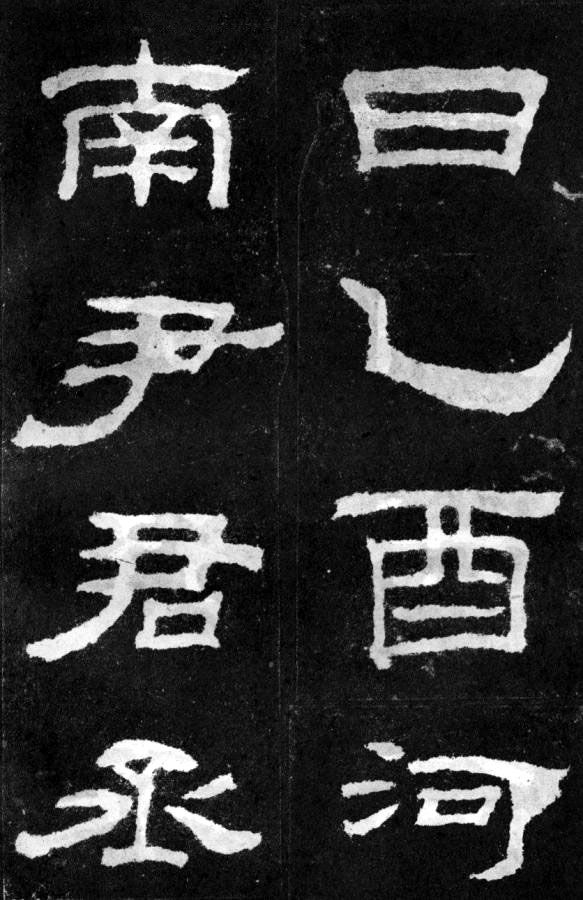 日乙酉河
南尹君丞